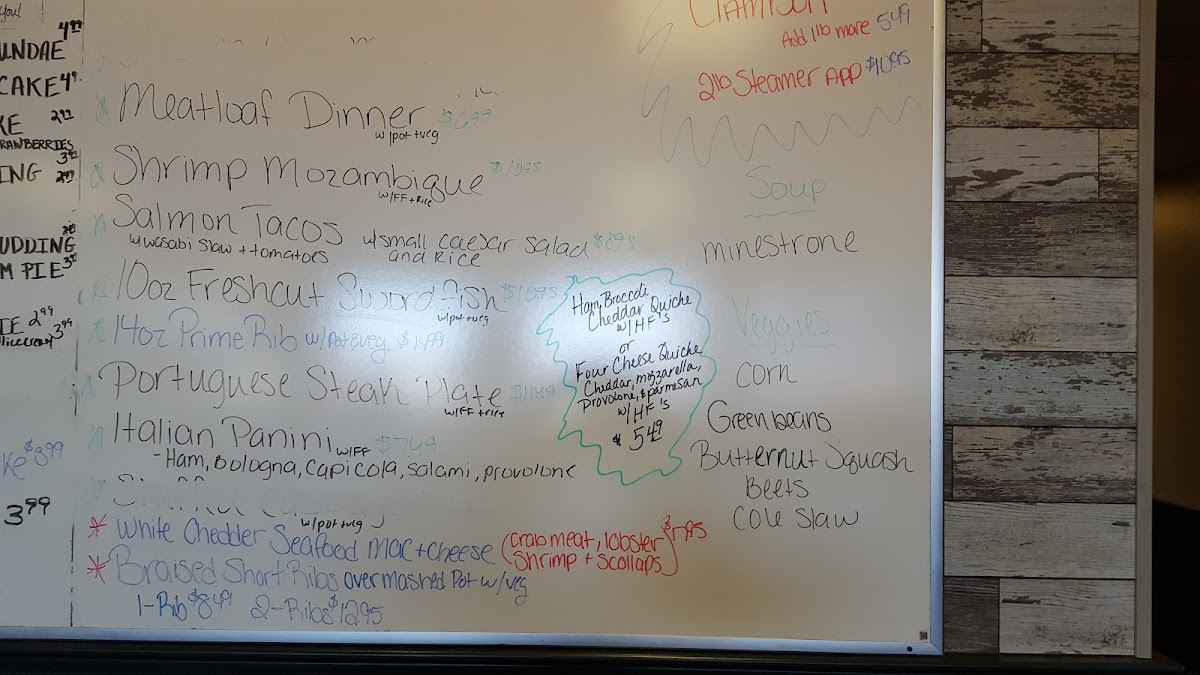 You!
4.99
UNDAE
CAKE 4.9
2.99
KE
RANBERRIES
3.
ING
UDDING
M PIE 3.
IE 2.99
3.99
KE $3.99
3.99
Add 1lb more 5.49
2lb Steamer APP $10.95
Meatloaf Dinner $6.99
w/pot+veg
Shrimp Mozambique $10.95
w/FF+Rice
Salmon Tacos w/small caesar salad $8.95
w/wasabi slaw + tomatoes and Rice
10oz Freshcut Swordfish $10.95
w/pot+veg
14oz Prime Rib w/Pot&veg $14.99
Portuguese Steak Plate $11.49
w/FF+rice
Italian Panini w/FF $7.49
-Ham, Bologna, Capicola, salami, provolone
w/pot+veg
* White Chedder Seafood Mac+Cheese (Crab meat, lobster
Shrimp + Scollaps)
* Braised Short Ribs over mashed Pot w/veg
1-Rib $8.49 2-Ribs $12.95
Ham, Broccoli
Cheddar Quiche
w/HF's
or
Four Cheese Quiche
Cheddar, mozzarella,
Provolone, & parmesan
w/HF's
$5.49
Soup
minestrone
Veggies
Corn
Green beans
Butternut Squash
Beets
Cole Slaw